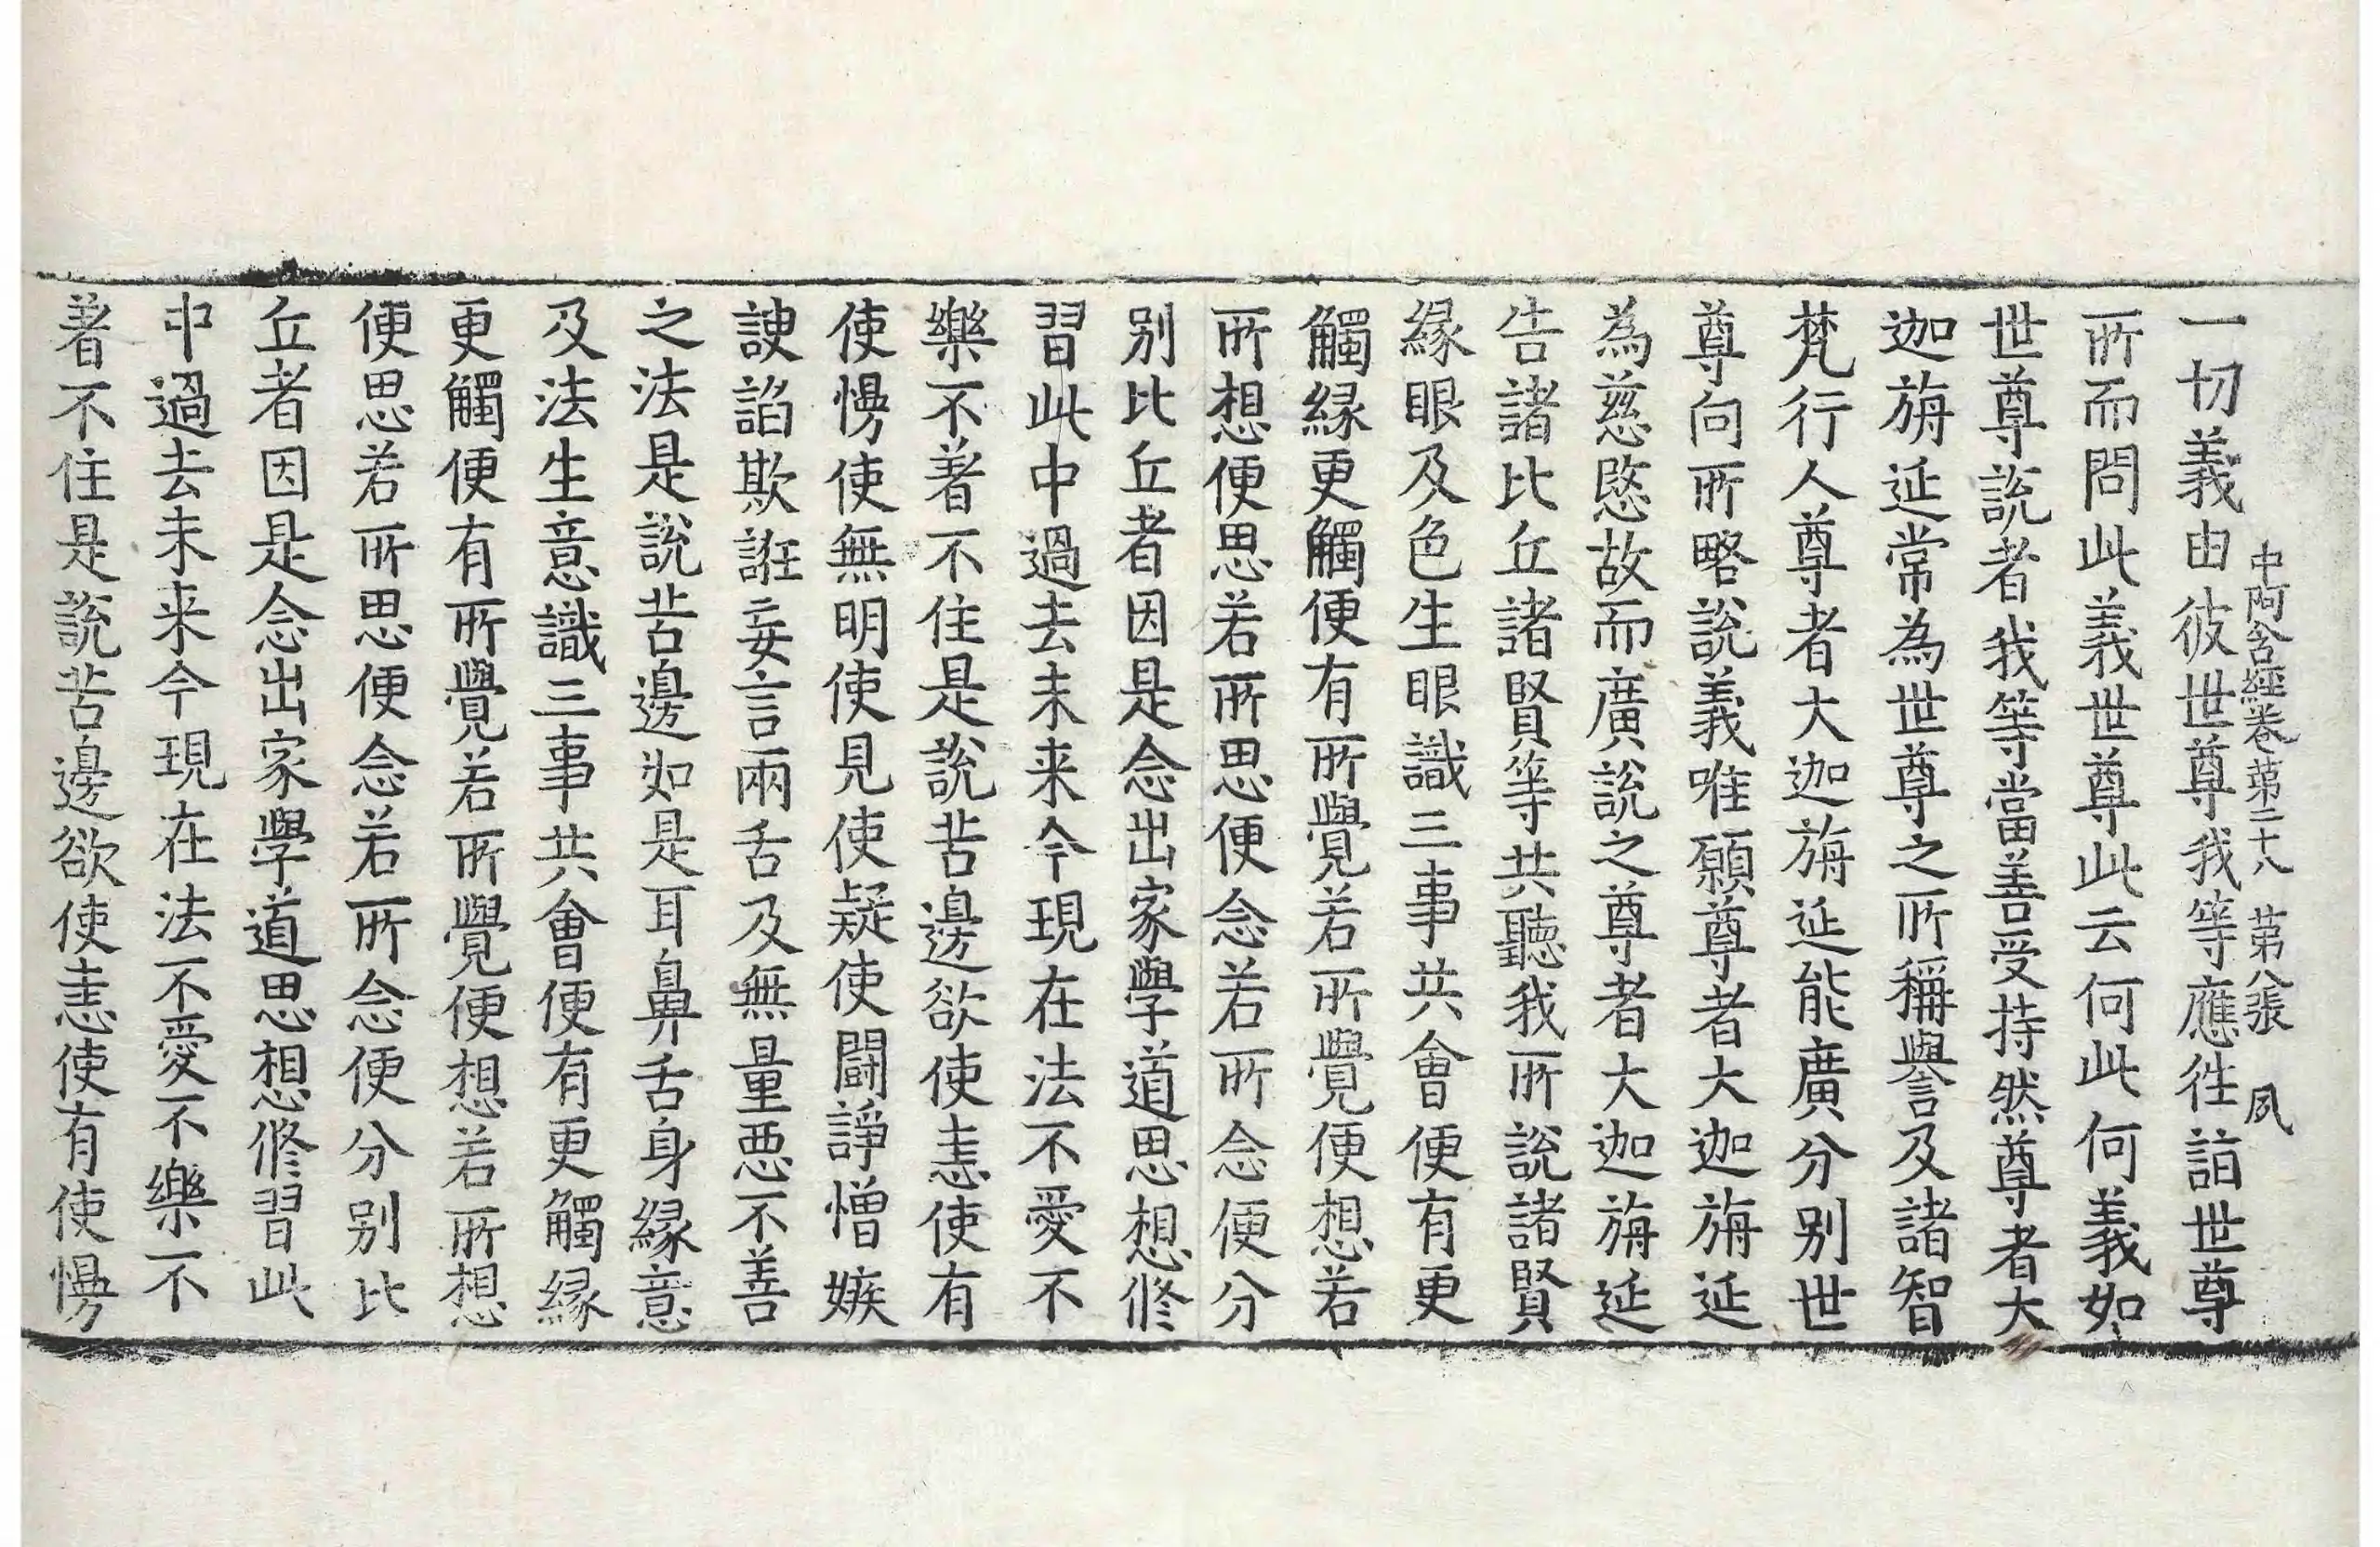 一切義由彼世尊我等應往詣世尊
中阿含經卷第二十八 第八張 夙
所而問此義世尊此云何此何義如
世尊說者我等當善受持然尊者大
迦旃延常為世尊之所稱譽及諸智
梵行人尊者大迦旃延能廣分别世
尊向所略說義唯願尊者大迦旃延
為慈愍故而廣說之尊者大迦旃延
告諸比丘諸賢等共聽我所說諸賢
緣眼及色生眼識三事共會便有更
觸緣更觸便有所覺若所覺便想若
所想便思若所思便念若所念便分
别比丘者因是念出家學道思想修
習此中過去未来今現在法不愛不
樂不著不住是說苦邊欲使恚使有
使慢使無明使見使疑使鬪諍憎嫉
諛諂欺誑妄言兩舌及無量惡不善
之法是說苦邊如是耳鼻舌身緣意
及法生意識三事共會便有更觸緣
更觸便有所覺若所覺便想若所想
便思若所思便念若所念便分别比
丘者因是念出家學道思想修習此
中過去未来今現在法不愛不樂不
著不住是說苦邊欲使恚使有使慢